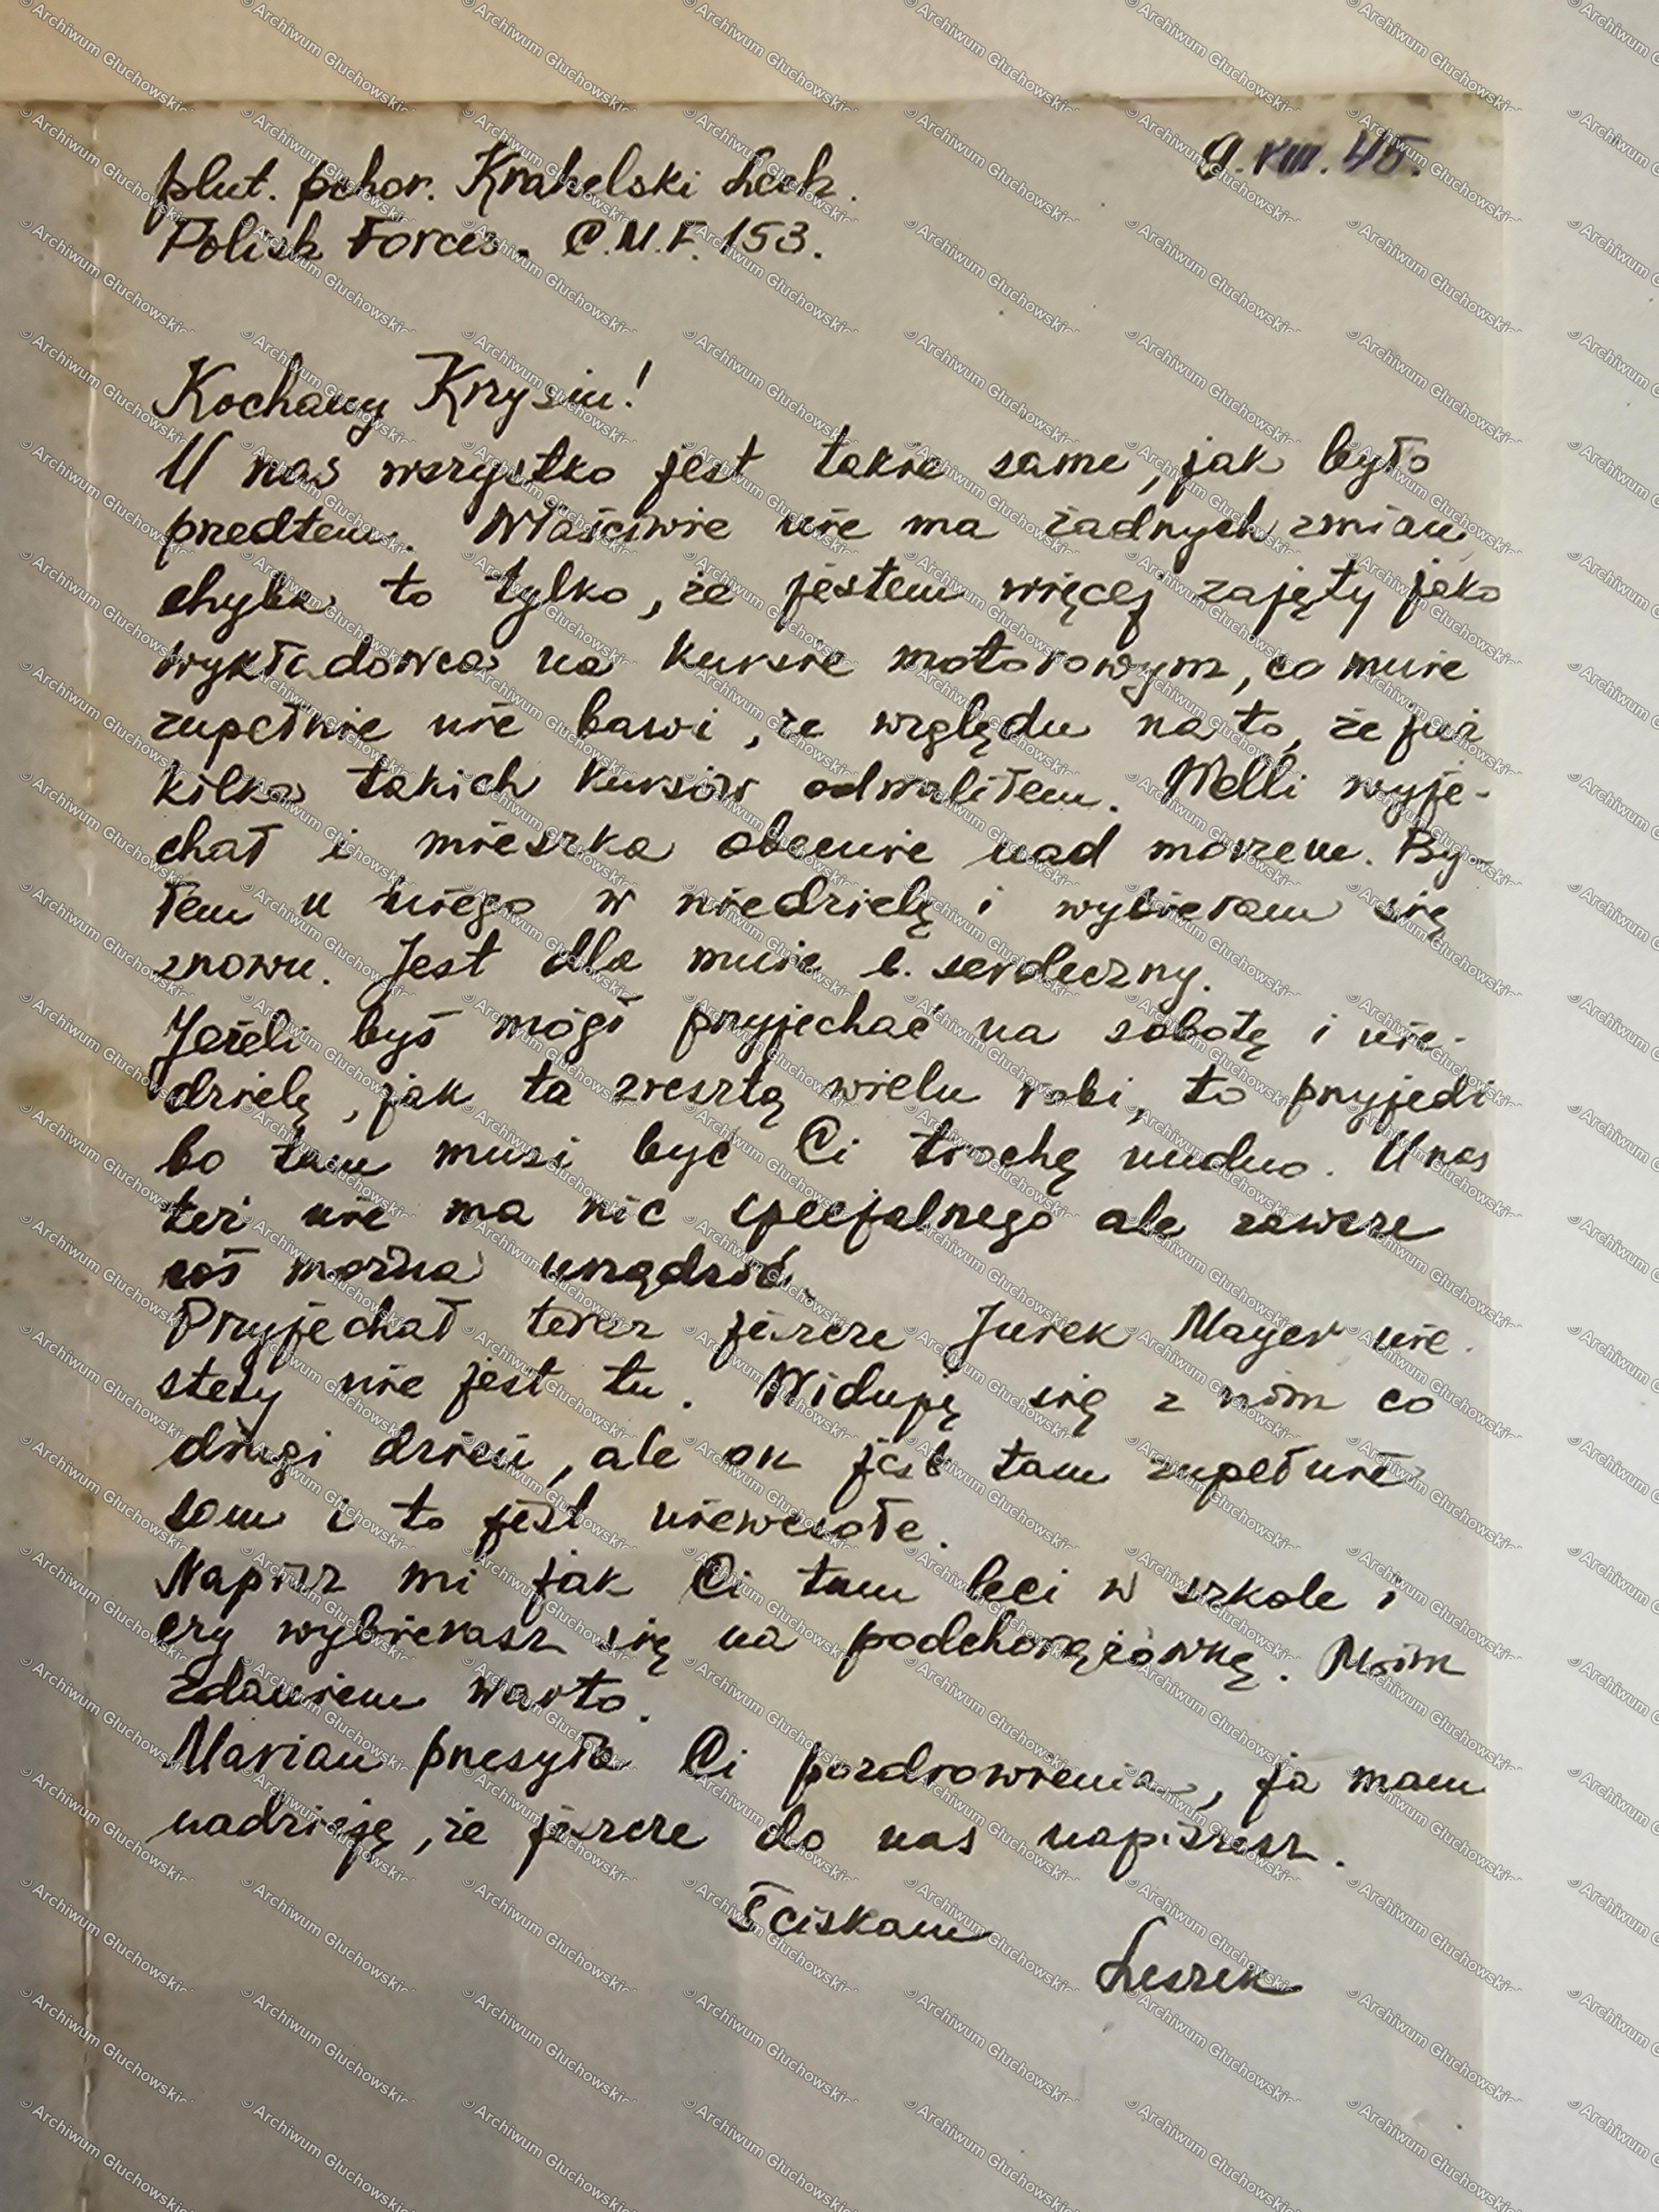 9.VIII.45.
plut. pchor. Krahelski Lech.
Polish Forces. C.M.F. 153.
Kochany Krzysiu!
U nas wszystko jest takie same, jak było
przedtem. Właściwie nie ma żadnych zmian,
chyba to tylko, że jestem więcej zajęty jako
wykładowca na kursie motorowym, co mnie
zupełnie nie bawi, ze względu na to, że już
kilka takich kursów odwaliłem. Welli wyje-
chał i mieszka obecnie nad morzem. By-
łem u niego w niedzielę i wybieram się
znowu. Jest dla mnie b. serdeczny.
Jeżeli byś mógł przyjechać na sobotę i nie-
dzielę, jak ta zresztą wielu robi, to przyjedź
bo tam musi być Ci trochę nudno. U nas
też nie ma nic specjalnego ale zawsze
coś można urządzić.
Przyjechał teraz jeszcze Jurek Mayer nie-
stety nie jest tu. Widuję się z nim co
drugi dzień, ale on jest tam zupełnie
sam i to jest niewesołe.
Napisz mi jak Ci tam leci w szkole i
czy wybierasz się na podchorążówkę. Moim
zdaniem warto.
Marian przesyła Ci pozdrowienia, ja mam
nadzieję, że jeszcze do nas napiszesz.
Ściskam
Leszek
© Archiwum Głuchowskich